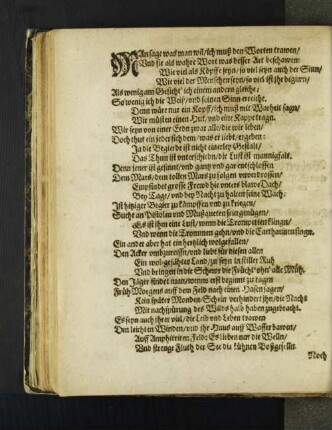 MAn sage was man wil / ich muß den Worten trawen /
Und sie als wahre Wort was besser Art beschawen:
Wie viel als Köpffe seyn / so viel seyn auch der Sinn /
Wie viel der Menschen seyn / so viel ist ihr beginn /
Als wenig am Gesicht' ich einem andern gleiche;
So wenig ich die Weiß / und seinen Sinn erreiche,
Denn wäre nur ein Kopff / ich muß mit Warheit sagn /
Wir müsten einen Hut / und eine Kappe tragn.
Wir seyn von einer Erd von zwar alle / die wir leben
Doch thut ein jeder dem / was er liebt / ergeben:
Ja die Begierd ist nicht einerley Gestalt /
Das Thun ist unterschieden / die Lust ist mannigfalt.
Denn jener ist gesinnt / und gantz und gar entschlossen
Dem Mars / dem tollen Mars zu folgen unverdrossen /
Empfindet grosse Frewd hie unters blawe Dach /
Bey Tage / und bey Nacht zu halten seine Wach:
Ist hitziger Begier zu kämpffen und zu kriegen /
Sucht an Pistolen und Mußqueten sein gnügen /
Es ist ihm eine Lust / wenn die Trompeten klingen /
Und wenn die Trommen gehn / und die Carthaunen singn.
Ein ander aber hat ein hertzlich wolgefallen /
Den Acker umbzureissn / und liebt für diesen allen
Ein wolgesätztes Land / zu seyn in stiller Ruh
Und bringet in die Schewr die Frücht' ohn' alle Müh.
Den Jäger findet man / wenn erst beginn zu tagen
Früh Morgens auff dem Feld nach einem Hasen jagen /
Kein später Monden-Schein verhindert ihn / die Nacht
Mit nachspürung des Wilds halb haben zugebracht.
Es seyn auch ihrer viel / die Leib und Leben trawen
Den leichten Winden / und ihr Haus auff Wasser bawen /
Auff Amphitriten Feldt: Es lieben nur die Welln /
Und strenge Fluth der See die kühnen Boßgeselln.
Noch